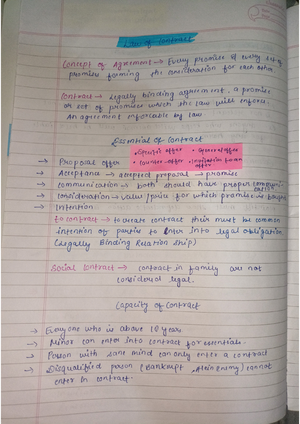 Law of Contract
Concept of Agreement → Every promise & every set of
promise forming the consideration for each other
Contract → Legally binding agreement, a promise
or set of promise which the law will enforce.
An agreement enforceable by law
Essential of Contract
• Specific offer • General offer
→ Proposal offer • Counter offer • Invitation for an offer
→ Acceptance → accepted proposal → promise
→ Communication → both should have proper
→ Consideration → value/price for which promise is bought
→ Intention
to contract → to create contract their must be common
intention of parties to enter into legal obligation
(Legally Binding Relationship)
Social Contract → contract in family are not
considered legal.
Capacity of Contract
→ Everyone who is above 18 years
→ Minor can enter into contract for essentials.
→ Person with sane mind can only enter a contract
→ Disqualified person (Bankrupt, Alein Enemy) cannot
enter in contract.